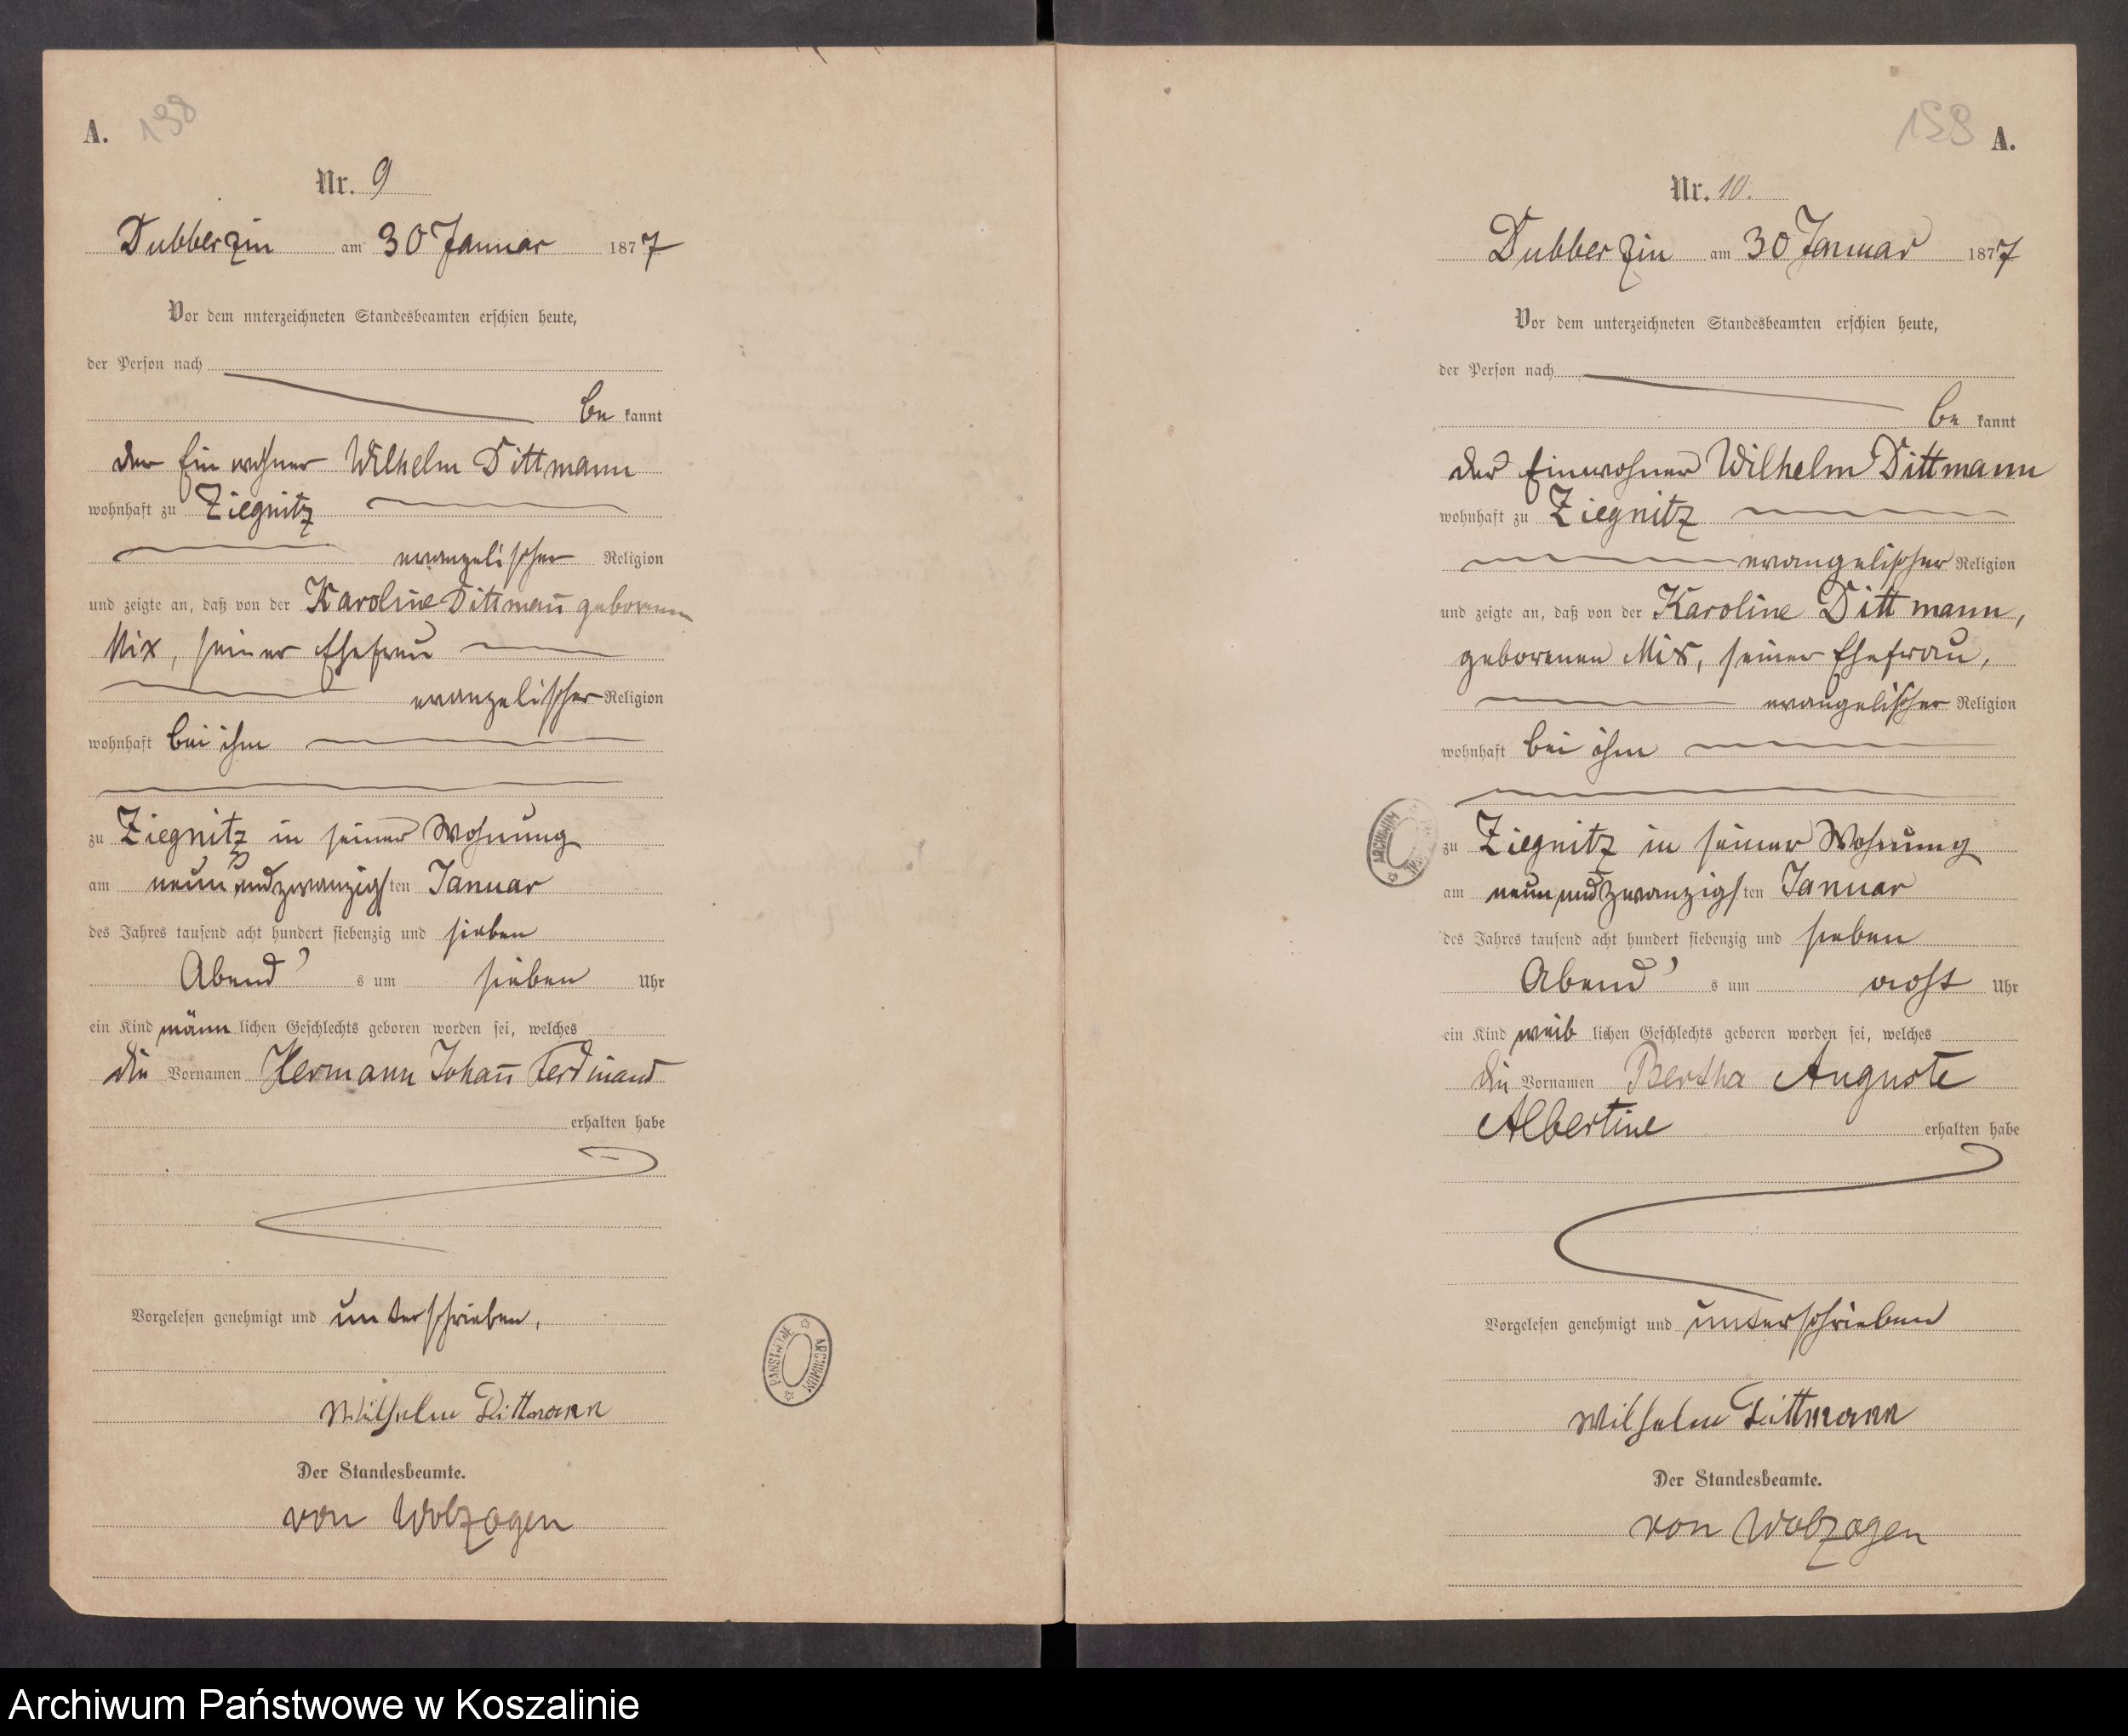 A. 198
Nr. 9
Dubberzin am 30 Januar 1877
Vor dem unterzeichneten Standesbeamten erschien heute,
der Person nach
be kannt
der Einwohner Wilhelm Dittmann
wohnhaft zu Ziegnitz
evangelischer Religion
und zeigte an, daß von der Karoline Dittmañ geborenen
Mix, seiner Ehefrau
evangelischer Religion
wohnhaft bei ihm
zu Ziegnitz in seiner Wohnung
am neun und zwanzigsten Januar
des Jahres tausend acht hundert siebenzig und sieben
Abend s um sieben Uhr
ein Kind männ lichen Geschlechts geboren worden sei, welches
die Vornamen Hermann Johañ Ferdinand
erhalten habe
Vorgelesen genehmigt und unterschrieben,
Wilhelm Dittmann
Der Standesbeamte.
von Wolzogen
ARCHIWUM PAŃSTWOWE
159 A.
Nr. 10.
Dubberzin am 30 Januar 1877
Vor dem unterzeichneten Standesbeamten erschien heute,
der Person nach
be kannt
der Einwohner Wilhelm Dittmann
wohnhaft zu Ziegnitz
evangelischer Religion
und zeigte an, daß von der Karoline Dittmann,
geborenen Mix, seiner Ehefrau,
evangelischer Religion
wohnhaft bei ihm
zu Ziegnitz in seiner Wohnung
am neun und zwanzigsten Januar
des Jahres tausend acht hundert siebenzig und sieben
Abend s um acht Uhr
ein Kind weib lichen Geschlechts geboren worden sei, welches
die Vornamen Bertha Auguste
Albertine erhalten habe
Vorgelesen genehmigt und unterschrieben
Wilhelm Dittmann
Der Standesbeamte.
von Wolzogen
ARCHIWUM
Archiwum Państwowe w Koszalinie